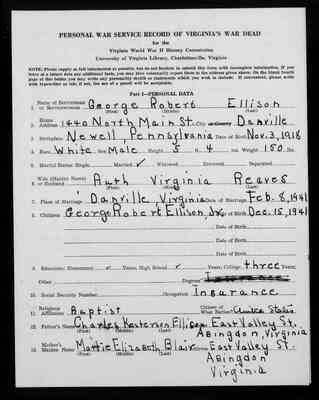 PERSONAL WAR SERVICE RECORD OF VIRGINIA'S WAR DEAD
for the
Virginia World War II History Commission
University of Virginia Library, Charlottesville, Virginia
NOTE: Please supply as full information as possible, but do not hesitate to submit this form with incomplete information. If you
learn at a future date any additional facts, you may then conveniently report them to the address given above. On the blank fourth
page of this folder you may write any personality sketch or statements which you wish to include. If convenient, please write
with typewriter or ink; if not, the use of a pencil will be acceptable.
Part I—PERSONAL DATA
1. Name of Serviceman or Servicewoman George Robert Ellison
(First) (Middle) (Last)
2. Home Address 1440 North Main St. City or County Danville
3. Birthplace Newell, Pennsylvania Date of Birth Nov. 3, 1918
4. Race White Sex Male Height 5 ft. 4 in. Weight 150 lbs.
5. Marital Status: Single Married ✓ Widowed Divorced Separated
6. Wife (Maiden Name) or Husband Ruth Virginia Reaves
(First) (Middle) (Last)
7. Place of Marriage Danville, Virginia Date of Marriage Feb. 8, 1941
8. Children George Robert Ellison, Jr. Date of Birth Dec. 15, 1941
Date of Birth
Date of Birth
Date of Birth
9. Education: Elementary ✓ Years; High School ✓ Years; College three Years;
Other Degrees
10. Social Security Number Occupation Insurance
11. Religious Affiliation Baptist Citizen of What Nation? United States
12. Father's Name Charles Ellison East Valley St.
(First) (Middle) (Last) Abingdon, Virginia
13. Mother's Maiden Name Mattie Elizabeth Blair East Valley St.
(First) (Middle) (Last) Abingdon
Virginia